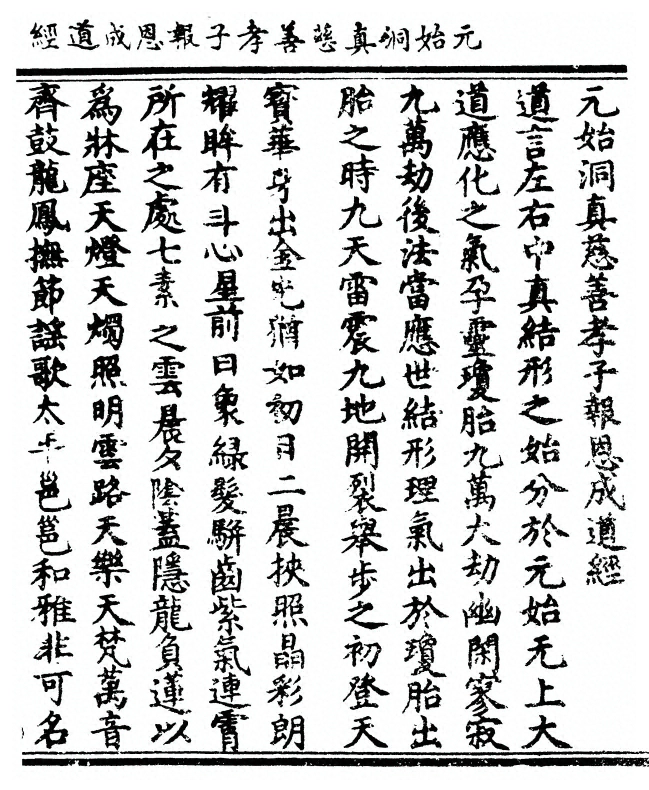 元始洞真慈善孝子報恩成道經
元始洞真慈善孝子報恩成道經
道言左右中真結形之始分於元始无上大
道應化之氣孕靈瓊胎九萬大劫幽閑寥寂
九萬劫後法當應世結形理氣出於瓊胎出
胎之時九天雷震九地開裂舉步之初登天
寶華身出金光猶如初日二晨挾照晶彩朗
耀眸有斗心星前日象綠髮駢齒紫氣連霄
所在之處七素之雲晨夕陰蓋隱龍負蓮以
為牀座天燈天燭照明雲路天樂天梵萬音
齊鼓龍鳳撫節謠歌太平邕邕和雅非可名